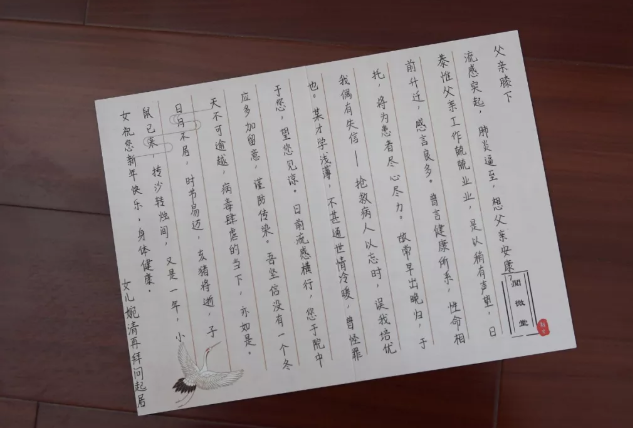 父亲膝下
流感突起，肺炎逼至，想父亲安康？
恭惟父亲工作兢兢业业，是以稍有声望，日
前升迁，感言良多。昔言健康所系，性命相
托，将为患者尽心尽力。故常早出晚归，于
我偶有失信——抢救病人以忘时，误我培优
也。某才学浅薄，不甚通世情冷暖，曾怪罪
于您，望您见谅。日前流感横行，您于院中
应多加留意，谨防传染。吾坚信没有一个冬
天不可逾越，病毒肆虐的当下，亦如是。
日月不居，时节易迈，亥猪将逝，子
鼠已来。抟沙转烛间，又是一年，小
女祝您新年快乐，身体健康。
女儿婉清再拜问起居
闻微堂